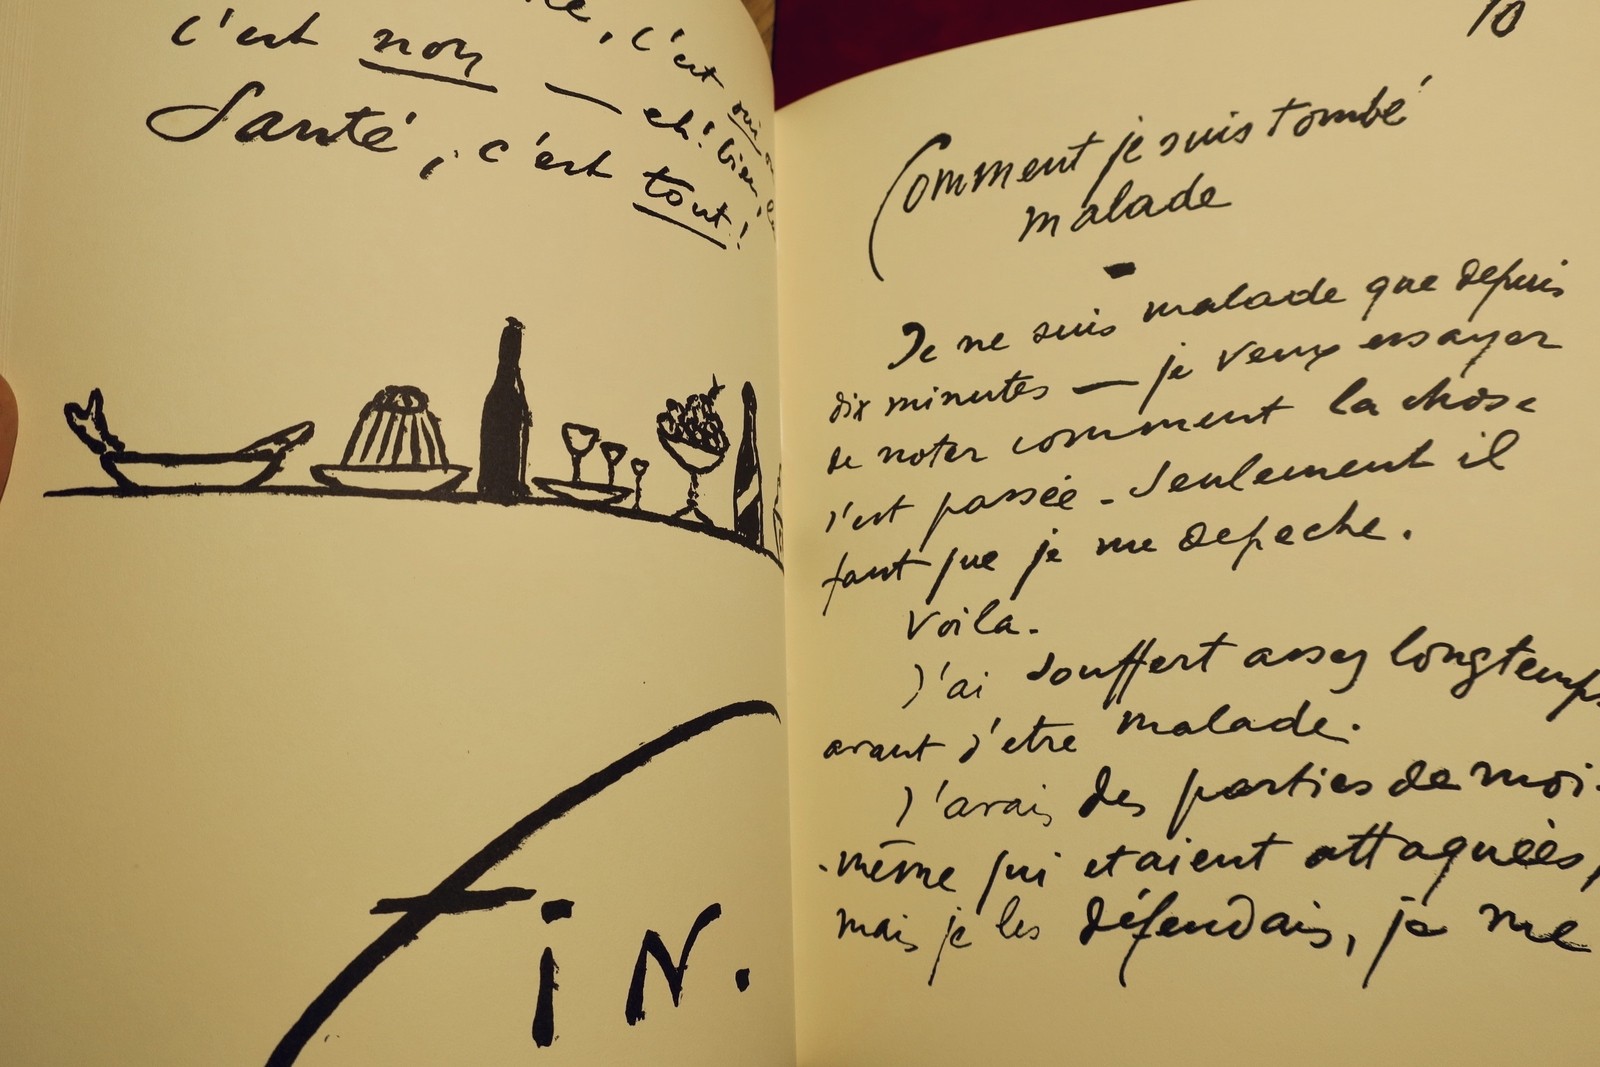 c'est
c'est non — eh! bien,
Santé, c'est tout!
FiN.
10
Comment je suis tombé
malade
Je ne suis malade que depuis
dix minutes — je veux essayer
de noter comment la chose
s'est passée - Seulement il
faut que je me depeche.
Voila.
J'ai souffert assez longtemps
avant d'etre malade.
J'avais des parties de moi-
-même qui etaient attaquées,
mais je les défendais, je me